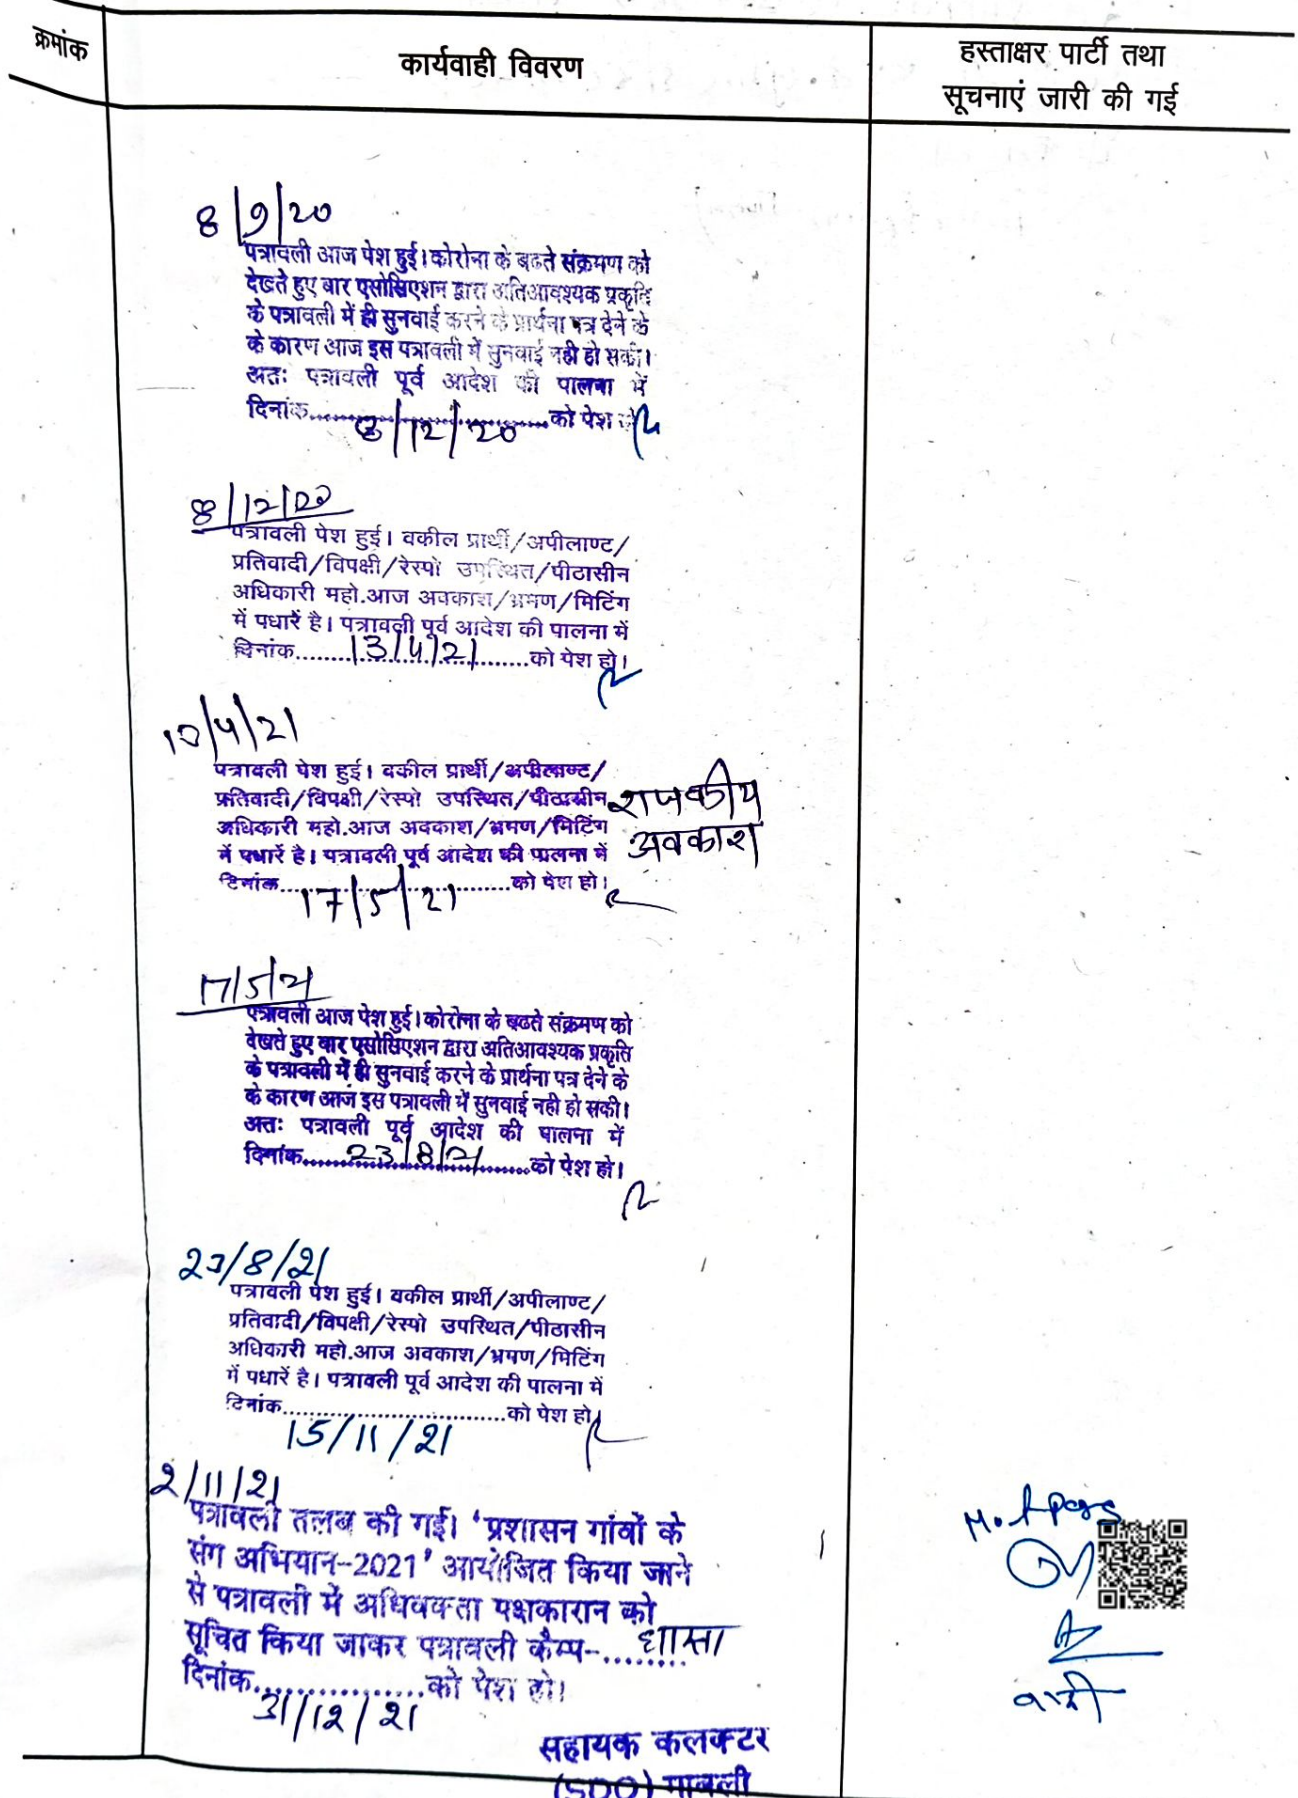 क्रमांक
कार्यवाही विवरण
हस्ताक्षर पार्टी तथा
सूचनाएं जारी की गई
8/9/20
पत्रावली आज पेश हुई। कोरोना के बढते संक्रमण को
देखते हुए बार एसोसिएशन द्वारा अतिआवश्यक प्रकृति
के पत्रावली में ही सुनवाई करने के प्रार्थना पत्र देने के
के कारण आज इस पत्रावली में सुनवाई नही हो सकी।
अतः पत्रावली पूर्व आदेश की पालना में
दिनांक 8/12/20 को पेश
8/12/20
पत्रावली पेश हुई। वकील प्रार्थी/अपीलाण्ट/
प्रतिवादी/विपक्षी/रेस्पो उपस्थित/पीठासीन
अधिकारी महो.आज अवकाश/भ्रमण/मिटिंग
में पधारें है। पत्रावली पूर्व आदेश की पालना में
दिनांक 13/4/21 को पेश हो।
13/4/21
पत्रावली पेश हुई। वकील प्रार्थी/अपीलाण्ट/
प्रतिवादी/विपक्षी/रेस्पो उपस्थित/पीठासीन राजकीय
अधिकारी महो.आज अवकाश/भ्रमण/मिटिंग अवकाश
में पधारें है। पत्रावली पूर्व आदेश की पालना में
दिनांक 17/5/21 को पेश हो।
17/5/21
पत्रावली आज पेश हुई। कोरोना के बढते संक्रमण को
देखते हुए बार एसोसिएशन द्वारा अतिआवश्यक प्रकृति
के पत्रावली में ही सुनवाई करने के प्रार्थना पत्र देने के
के कारण आज इस पत्रावली में सुनवाई नही हो सकी।
अतः पत्रावली पूर्व आदेश की पालना में
दिनांक 23/8/21 को पेश हो।
23/8/21
पत्रावली पेश हुई। वकील प्रार्थी/अपीलाण्ट/
प्रतिवादी/विपक्षी/रेस्पो उपस्थित/पीठासीन
अधिकारी महो.आज अवकाश/भ्रमण/मिटिंग
में पधारें है। पत्रावली पूर्व आदेश की पालना में
दिनांक 15/11/21 को पेश हो।
2/11/21
पत्रावली तलब की गई। 'प्रशासन गांवों के
संग अभियान-2021' आयोजित किया जाने
से पत्रावली में अधिवक्ता पक्षकारान को
सूचित किया जाकर पत्रावली कैम्प-
दिनांक 31/12/21 को पेश हो।
सहायक कलक्टर
(SDO)